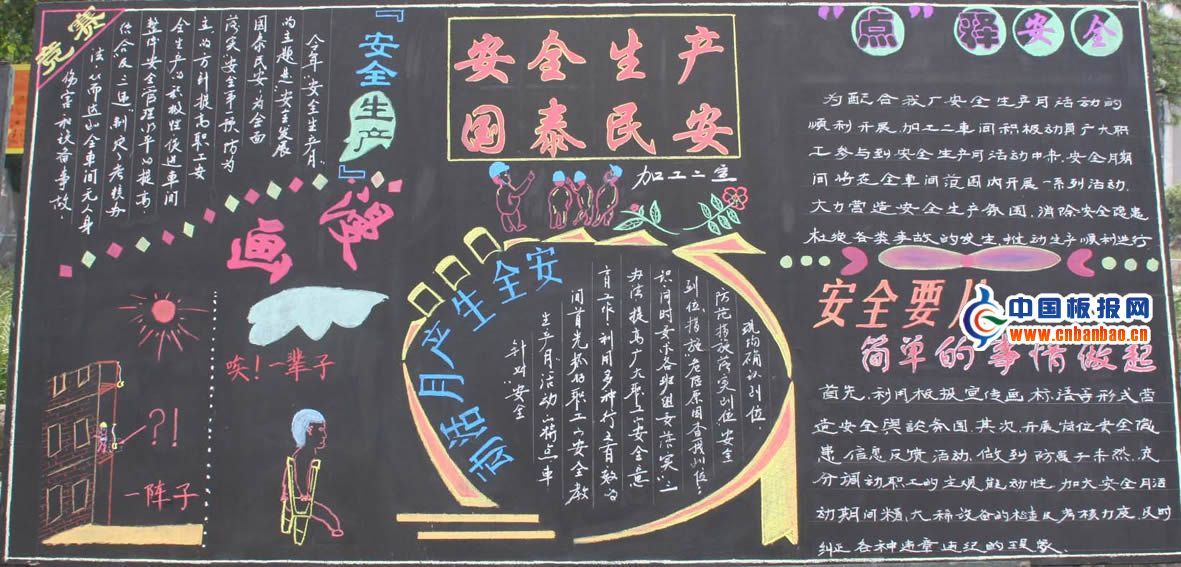 竞赛
『安全生产』
今年"安全生产月"
的主题是"安全发展
国泰民安"为全面
落实"安全第一预防为
主"的方针提高职工安
全生产的积极性促进车间
整体安全管理水平的提高
伤害和设备事故.
安全生产
国泰民安
加工二车
漫画
唉!一辈子
?!
一阵子
安全生产月活动
针对"安全
生产月"活动的特点车
间首先抓好职工的安全教
育工作利用多种行之有效的
办法提高广大职工的安全意
识同时要求各班组要落实"三
到位"
防范措施落实到位,安全
现场确认到位
"点"译安全
为配合我厂安全生产月活动的
顺利开展,加工二车间积极动员广大职
工参与到安全生产月活动中来,安全月期
间将在全车间范围内开展一系列活动,
大力营造安全生产氛围,消除安全隐患
杜绝各类事故的发生,推动生产顺利进行
安全要从
简单的事情做起
首先,利用板报宣传画,标语等形式营
造安全舆论氛围,其次,开展岗位安全隐
患信息反馈活动,做到防患于未然,充
分调动职工的主观能动性,加大安全月活
动期间精、大、稀设备的检查及考核力度,及时
纠正各种违章违纪的现象.
中国板报网
www.cnbanbao.cn